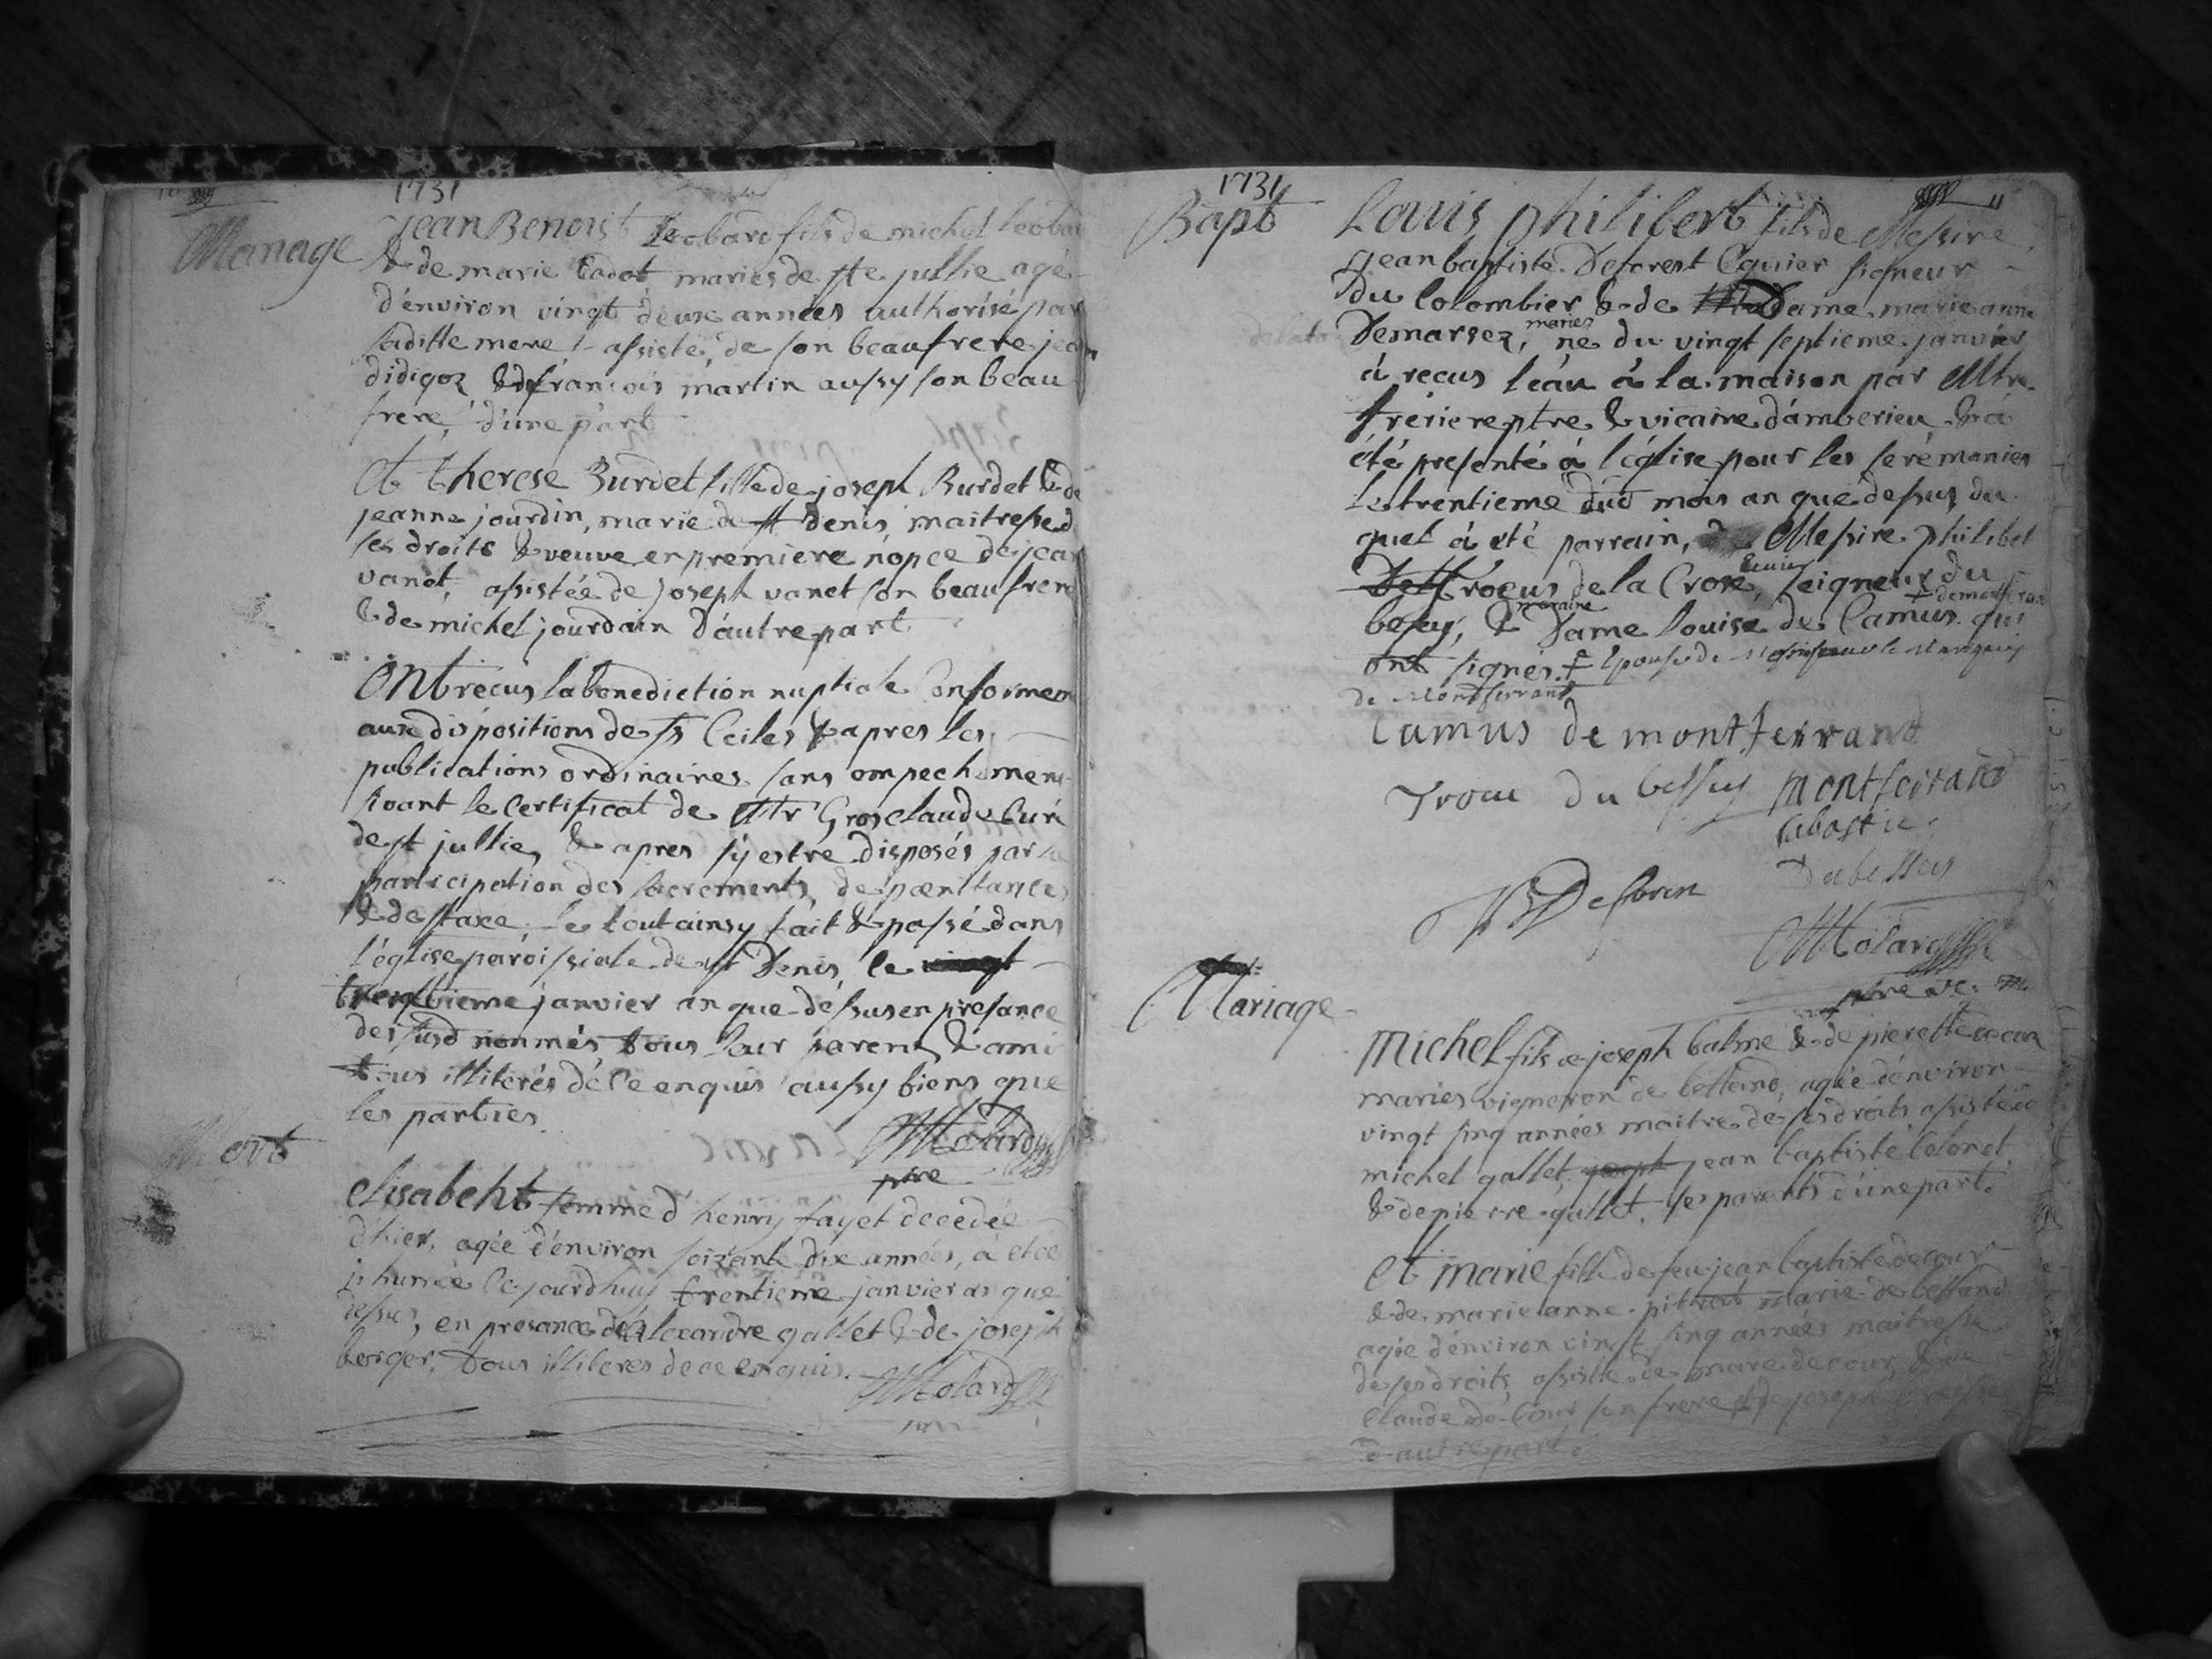 1731
Mariage
Jean Benoist Leobard fils de michel Leobar
& de marie Cadot mariés de Ste jullie agé
d'énviron vingt deux années authorisé par
saditte mere, assisté de son beaufrere jean
didigoz & de françois martin aussy son beau
frere, d'une part
Et therese Burdet fille de joseph Burdet & de
jeanne jourdin, marié de st denis, maitresse d
ses droits & veuve en premiere nopce de jean
vanet, assistée de Joseph vanet son beau frere
& de michel jourdain d'autre part
Ont recus la benediction nuptiale Conformem
aux dispositions de Sts Cciles & apres les
publications ordinaires sans ompechement
sivant le Certificat de Mtr Grosclaude Curé
de st jullie, & apres s'y estre disposés par la
participation des sacrements, de pœnitances
& de staxe, le tout ainsy fait & passé dans
l'église paroissiale de st Denis, le vingt
trentieme janvier an que déssus en présance
des susd nonmés tous leur parens & ami
tous illiterés de ce enquis aussy biens que
les parties
MMolard
ptre
Mort
elisabeht femme d'henry fayet decedée
d'hier, agée d'énviron soizante dix années, à etee
inhumée Ce jourdhuy trentieme janvier an que
dessus, en presance d'Alexandre gallet & de joseph
berger, tous illiteres de ce enquis.
MMolard
1731
11
Bapt
Louis philibert fils de Messire
Jean baptiste Deforest Equier signeur
du Colombier & de Madame marie anne
Demarsez, mariez né du vingt septieme janvier
à recus l'eau à la maison par Mtre
frerière ptre & vicaire d'amberieu & a
été presenté à l'église pour les serémonies
le trentieme dud mois an que dessus, du
quel à été parrain, Messire philibet
Trocus de la Croze, Ecuier seigneur du
besey, & maraine Dame Louise de Camus qui
ont signes. + Epouse de le Marquis
de Montferrant
Camus de montferrand
Trocu du bessey montferrand
labastie
Dubessey
MMolard
ptre vic.
Mariage
Michel fils de joseph balme & de pierette decour
mariés vigneron de lettand, agée d'énviron
vingt sinq années maitre de ses droits assisté de
michel gallet, joseph jean baptiste Colonel
& de pierre gallet, ses parents d'une part.
Et marie fille de feu jean baptiste decour
& de marie anne pitrat marié de lettand
agée d'énviron vingt sinq années maitresse
de ses droits assistée de mare decour,
Claude de Cour son frere & de joseph
d'autre part.